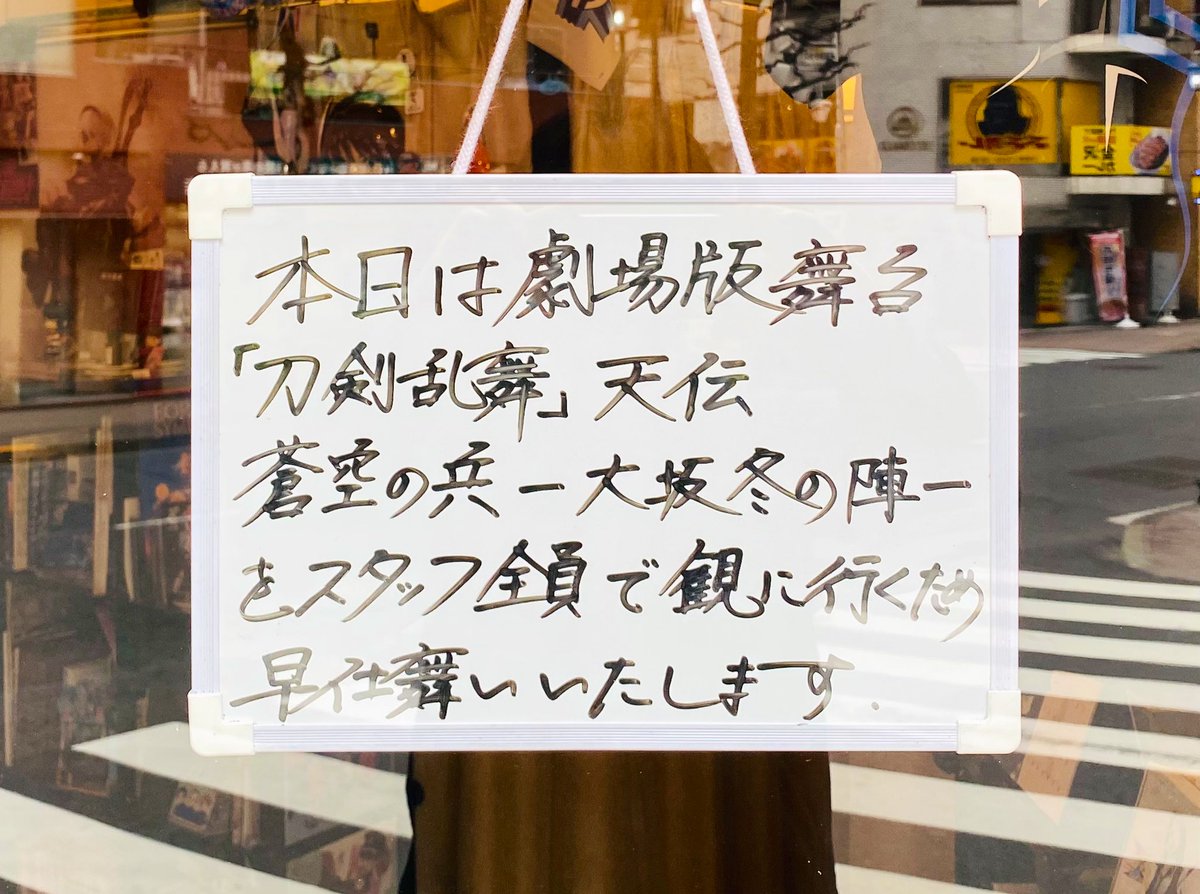 本日は劇場版舞台
「刀剣乱舞」天伝
蒼空の兵ー大坂冬の陣ー
をスタッフ全員で観に行くため
早仕舞いいたします.